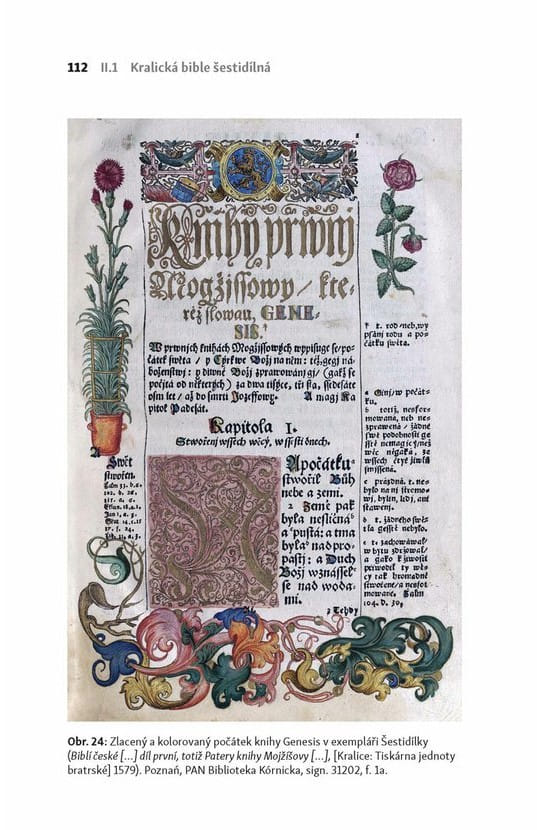 112 II.1 Kralická bible šestidílná
Knihy prwnj
Mogžjssowy / kte-
réž slowau, GENE-
SIS.
W prwnjch knihách Mogžjssowých wypisuge se / po-
čátek swěta / y Cýrkwe Božj na něm : též, gegj ná-
boženstwj : y diwné Božj zprawowánj gj / (gakž se
počjtá od některých) za dwa tisýce, tři sta, ssedesáte
osm let / až do smrti Jozeffowy. A magj Ka
pitol Padesát.
Kapitola I.
Stwořenj wssech wěcý, w ssesti dnech.
A Swět
stwořen.
NApočátku
stwořil Bůh
nebe a zemi.
2 Země pak
byla nesličná
a pustá: a tma
byla nad pro-
pastj: a Duch
Božj wznássel
se nad woda-
mi.
2 Tehdy
† t. rod / neb, wy
psánj rodu a po-
čátku swěta.
a Ginj / w počát-
ku.
b totiž, nesfor-
mowaná, neb ne-
zprawená / žádné
své podobnosti ge
sstě nemagjc / než
wěc něgaká, ze
wssech čtyř žiwlů
smjssená.
c prázdná. t. ne-
bylo na nj stromo-
wj, bylin, lidj, ani
stawenj.
d t. žádného swět-
la gesstě nebylo.
e t. zachowáwal /
w bytu zdržowal /
Obr. 24: Zlacený a kolorovaný počátek knihy Genesis v exempláři Šestidílky
(Biblí české [...] díl první, totiž Patery knihy Mojžíšovy [...], [Kralice: Tiskárna jednoty
bratrské] 1579). Poznań, PAN Biblioteka Kórnicka, sign. 31202, f. 1a.